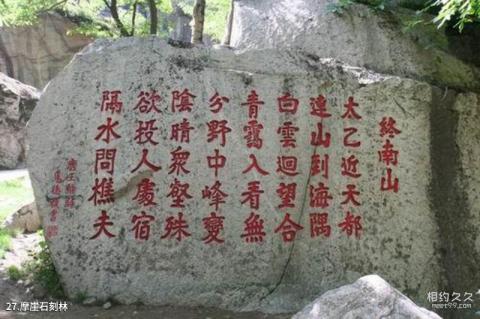 終南山
太乙近天都
連山到海隅
白雲迴望合
青靄入看無
分野中峰變
陰晴衆壑殊
欲投人處宿
隔水問樵夫
27.摩崖石刻林
相约久久
meet99.com